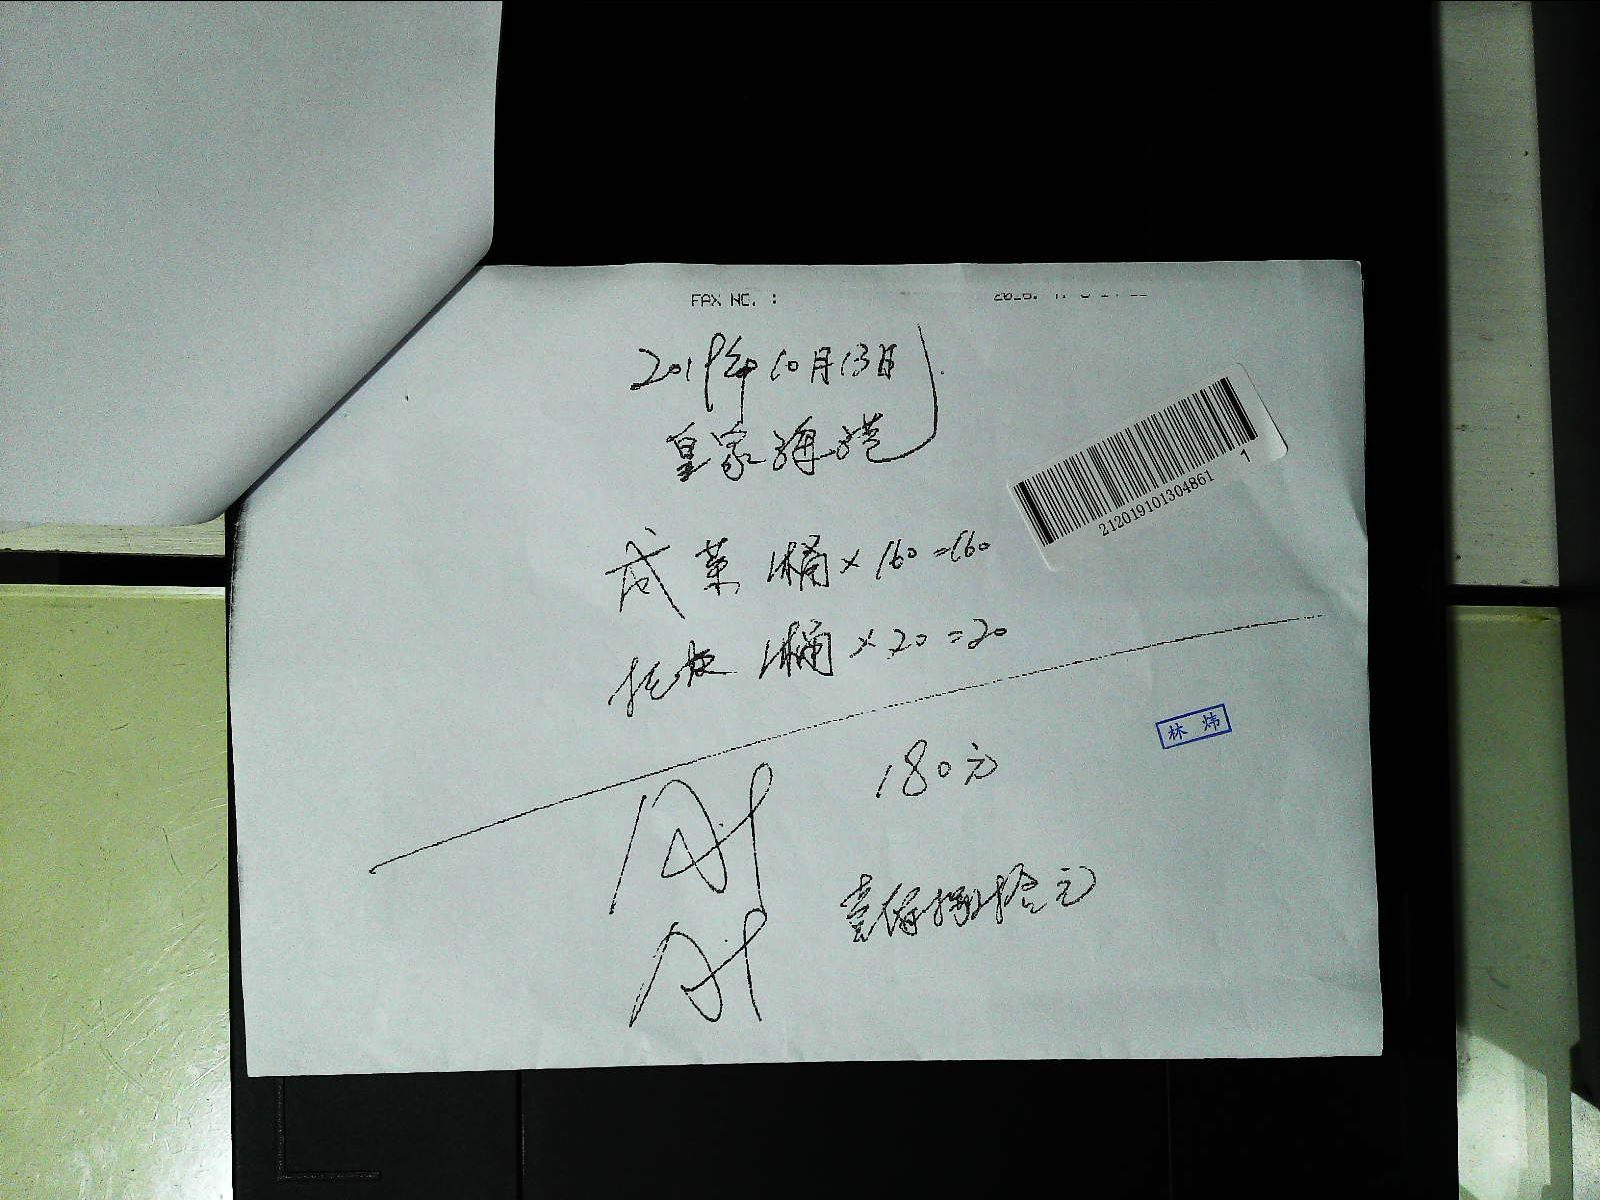 FAX NO. :
2019年10月13日
皇家海港
咸菜 1桶×160=160
1桶×20=20
212019101304861 1
林 炜
180元
壹佰捌拾元